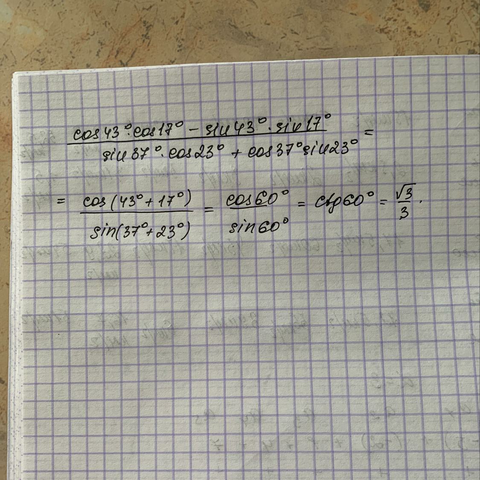 cos43°·cos17° − sin43°·sin17°
sin37°·cos23° + cos37°sin23° =
= cos(43°+17°) / sin(37°+23°) = cos60° / sin60° = ctg60° = √3 / 3.